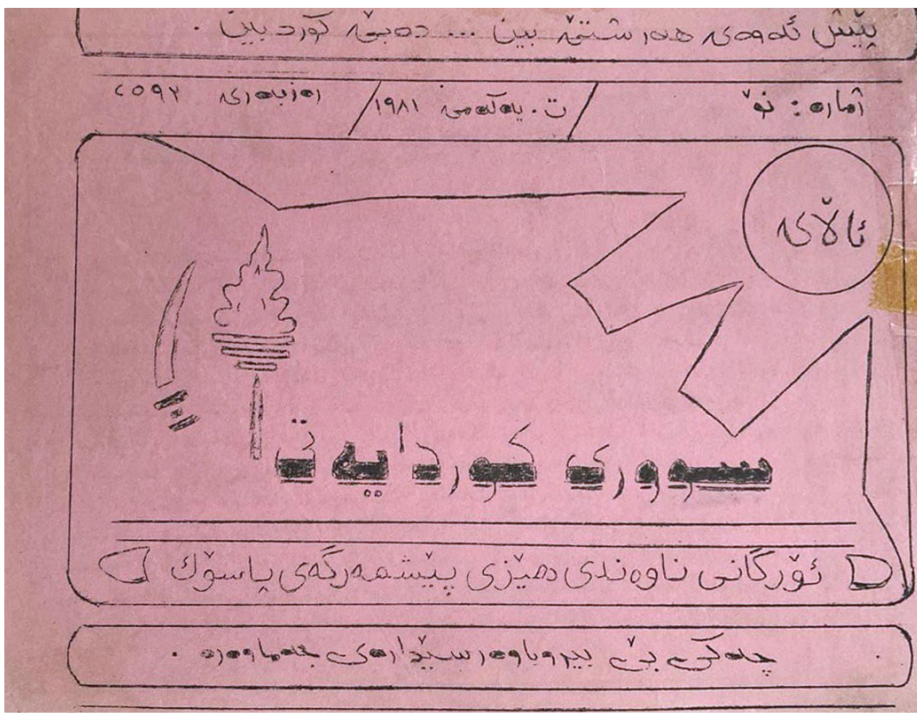 پێش ئەوەی هەر شتێ بین ... دەبێ کورد بین .
ژمارە : نۆ / ت. یەکەمی ١٩٨١ / رەزبەری ٢٥٩٢
ئاڵای
سووری کوردایەتی
ئۆرگانی ناوەندی هێزی پێشمەرگەی پاسۆک
چەکی بێ بیروباوەر سێدارەی جەماوەرە .